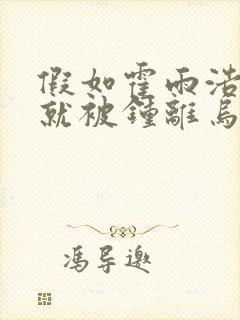 假如霍雨浩
就被锺離烏
馮导邀